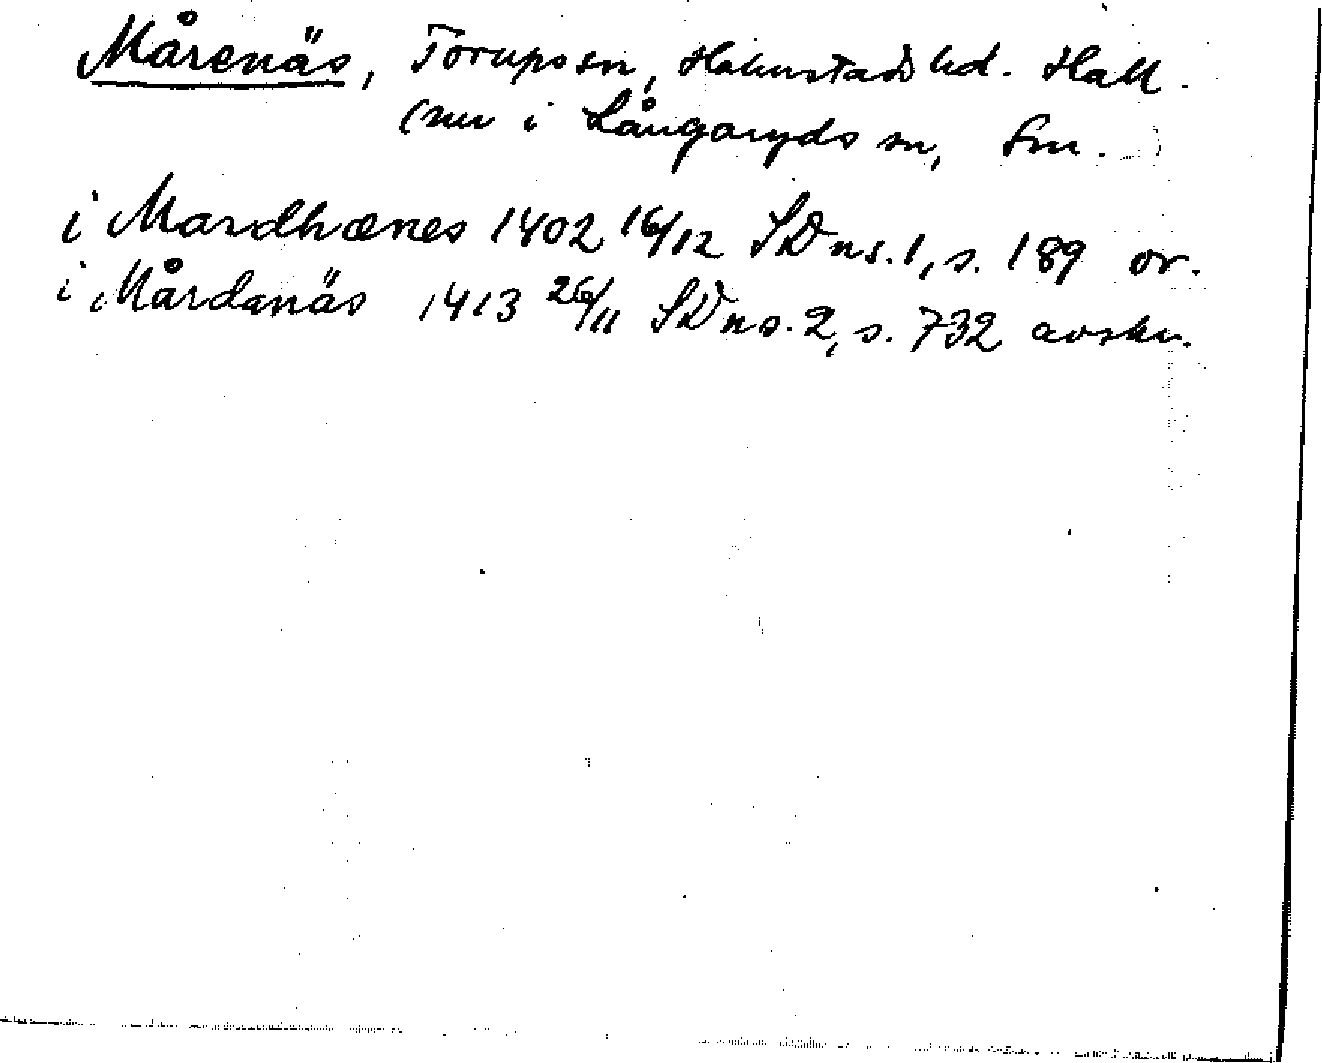 Mårenäs, Torups sn, Halmstads hd. Hall.
(nu i Långaryds sn, Sm.)
i Mardhænes 1402 16/12 SD ns. 1, s. 189 or.
i Mårdanäs 1413 26/11 SD ns. 2, s. 732 avskr.